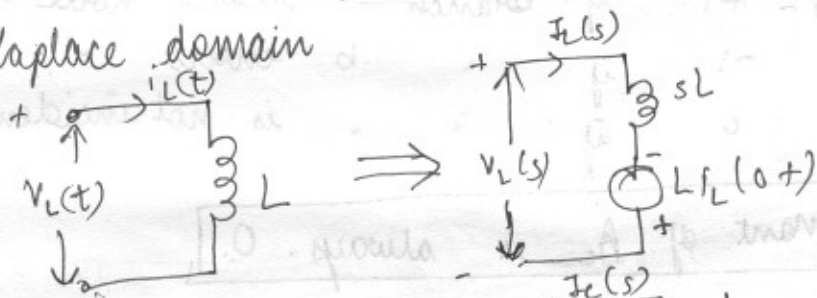 Laplace domain
i_L(t)
+
V_L(t)
L
I_L(s)
+
sL
V_L(s)
-
L I_L(0+)
+
-
I_L(s)
always. 0.